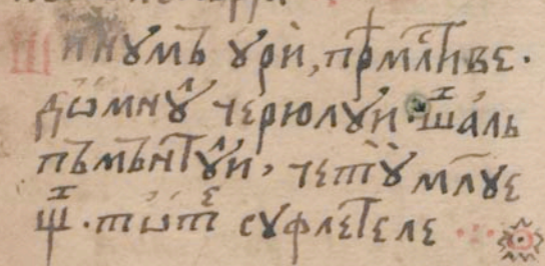 Шинумъ ꙋрй, прⷭ҇млⷭ҇тиве·
дѡмнꙋ̑ черюлꙋй· ш҃а́ль
пъмънтꙋ̑й, четꙋ̀ млꙋе
щ҃· тѡтⷷ суфлетеле